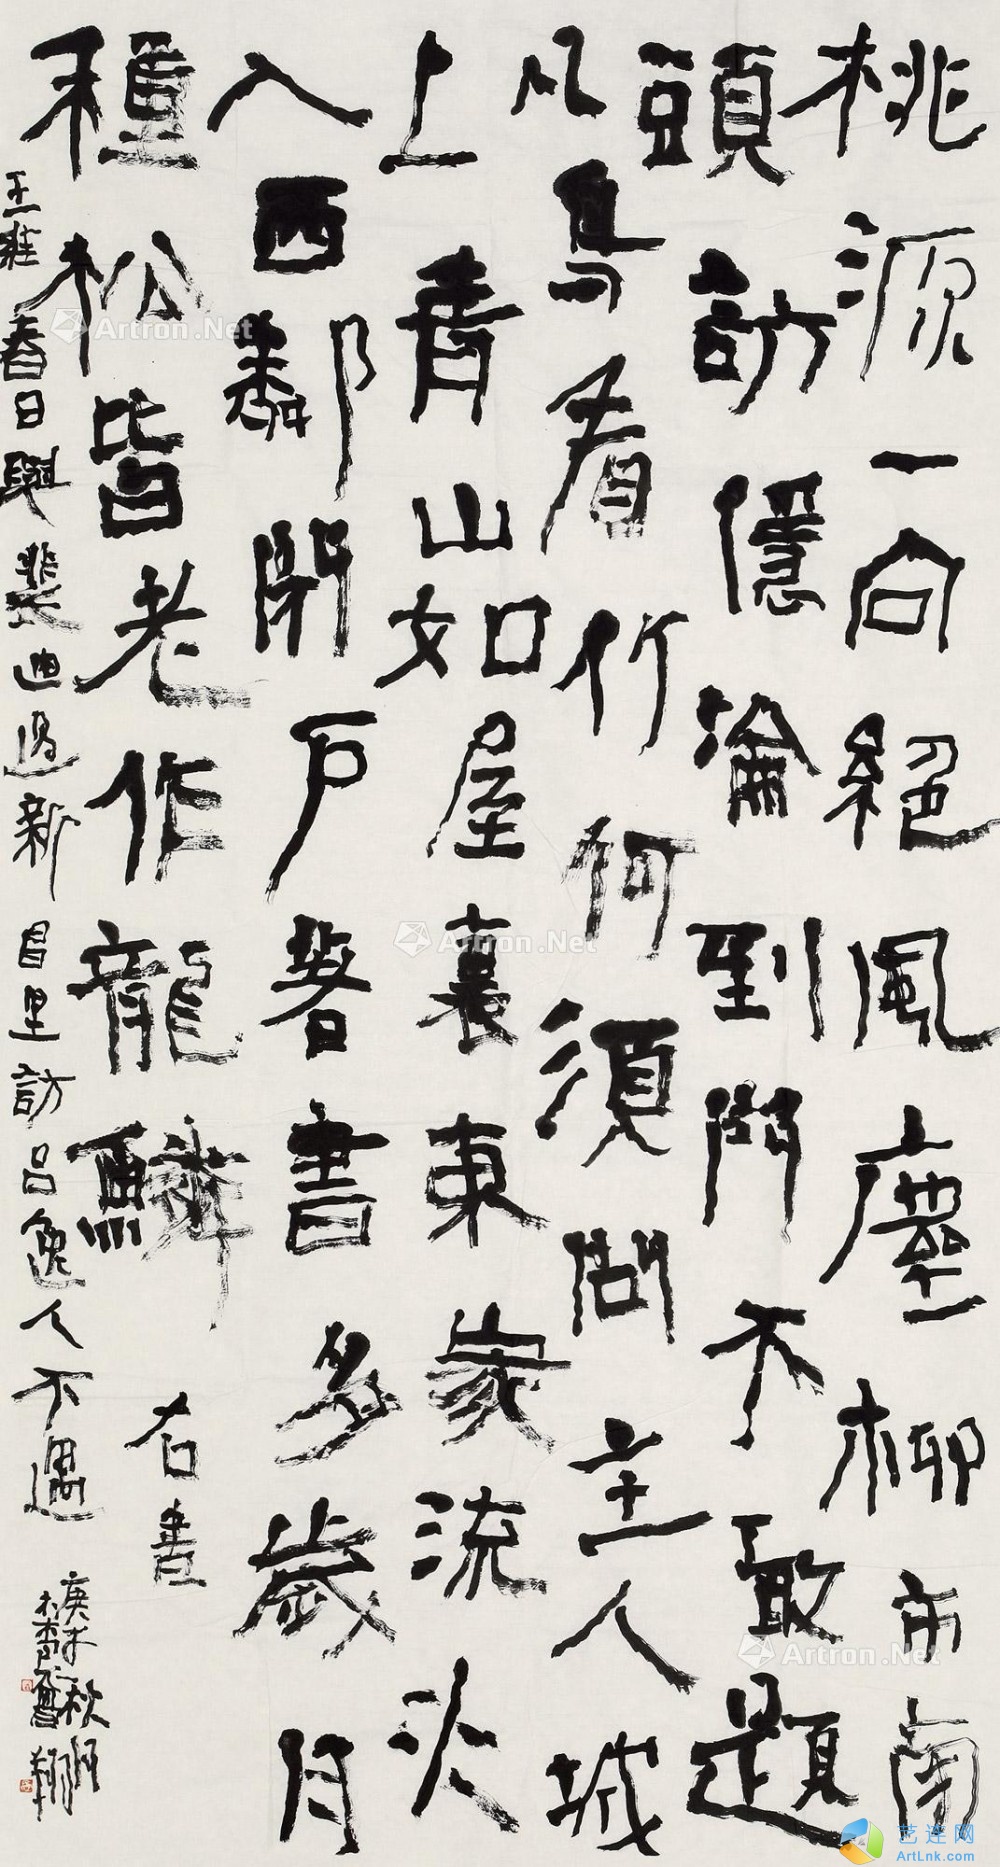 桃源一向絕風塵柳市南
頭訪隱淪到門不敢題
凡鳥看竹何須問主人城
上青山如屋裏東家流水
入西鄰閉戶著書多歲月
種松皆老作龍鱗 右書
王維春日與裴迪過新昌里訪呂逸人不遇
Artron.Net
Artron.Net
Artron.Net
艺连网
ArtLnk.com